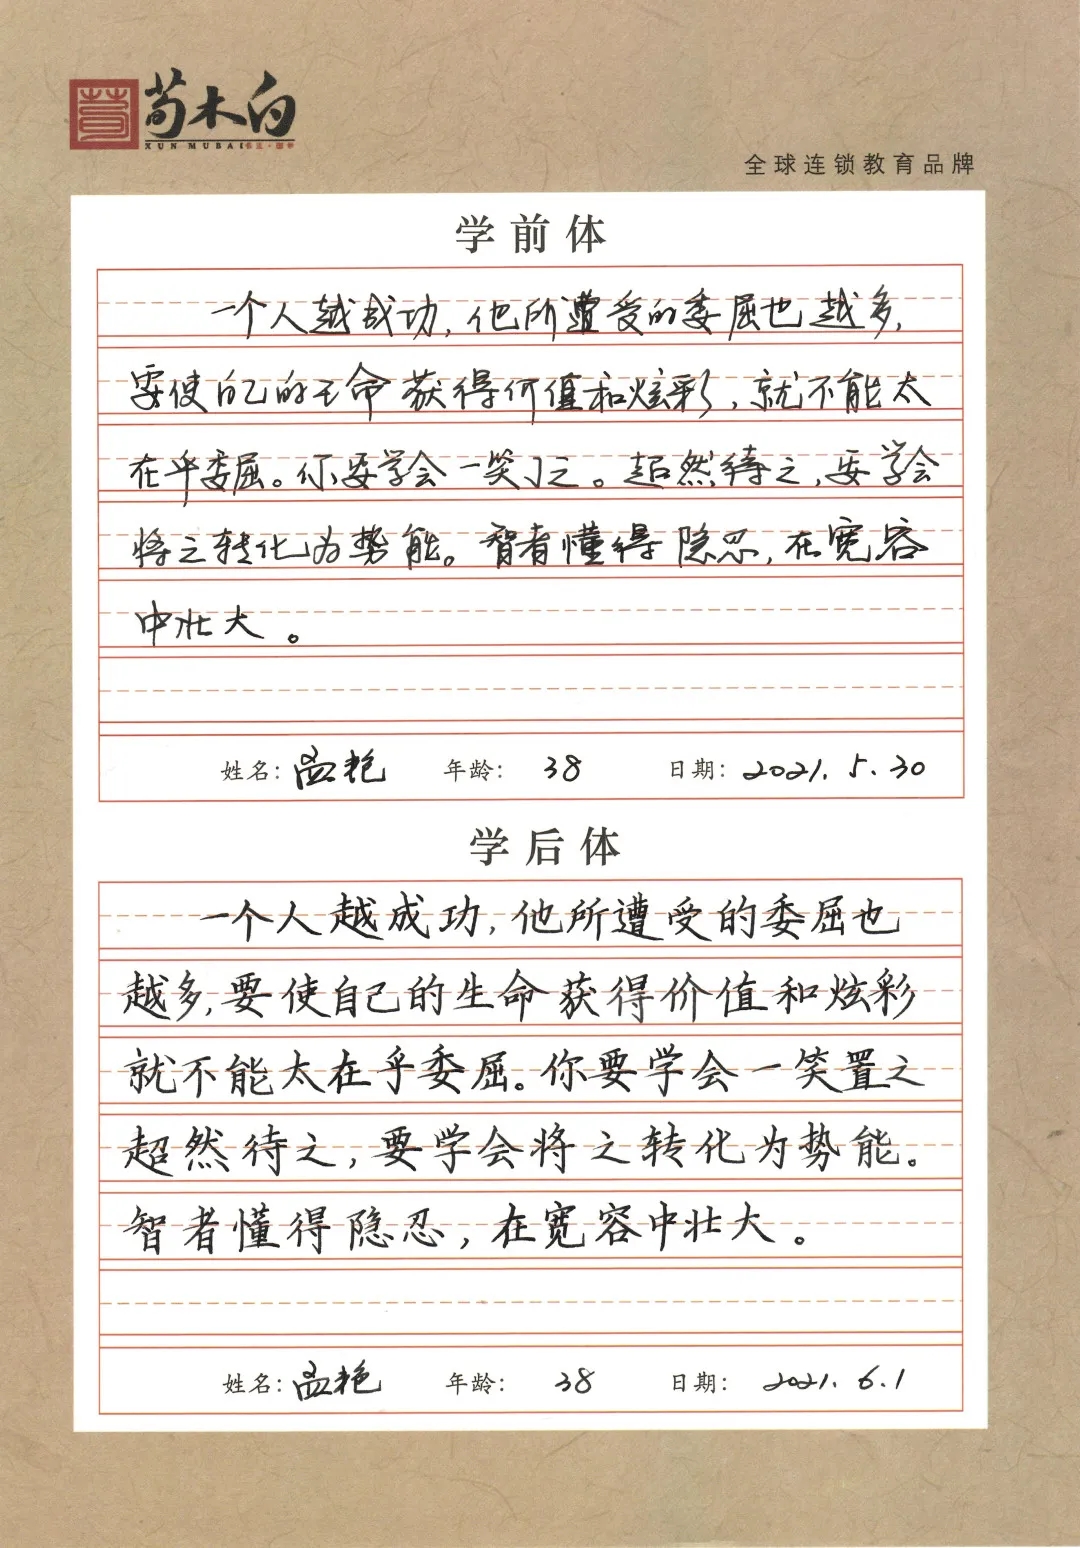 荀木白
XUN MUBAI
全球连锁教育品牌
学前体
一个人越成功,他所遭受的委屈也越多,
要使自己的生命获得价值和炫彩,就不能太
在乎委屈。你要学会一笑之。超然待之,要学会
将之转化为势能。智者懂得隐忍,在宽容
中壮大。
姓名:孟艳 年龄: 38 日期: 2021.5.30
学后体
一个人越成功,他所遭受的委屈也
越多,要使自己的生命获得价值和炫彩
就不能太在乎委屈。你要学会一笑置之
超然待之,要学会将之转化为势能。
智者懂得隐忍,在宽容中壮大。
姓名:孟艳 年龄: 38 日期: 2021.6.1